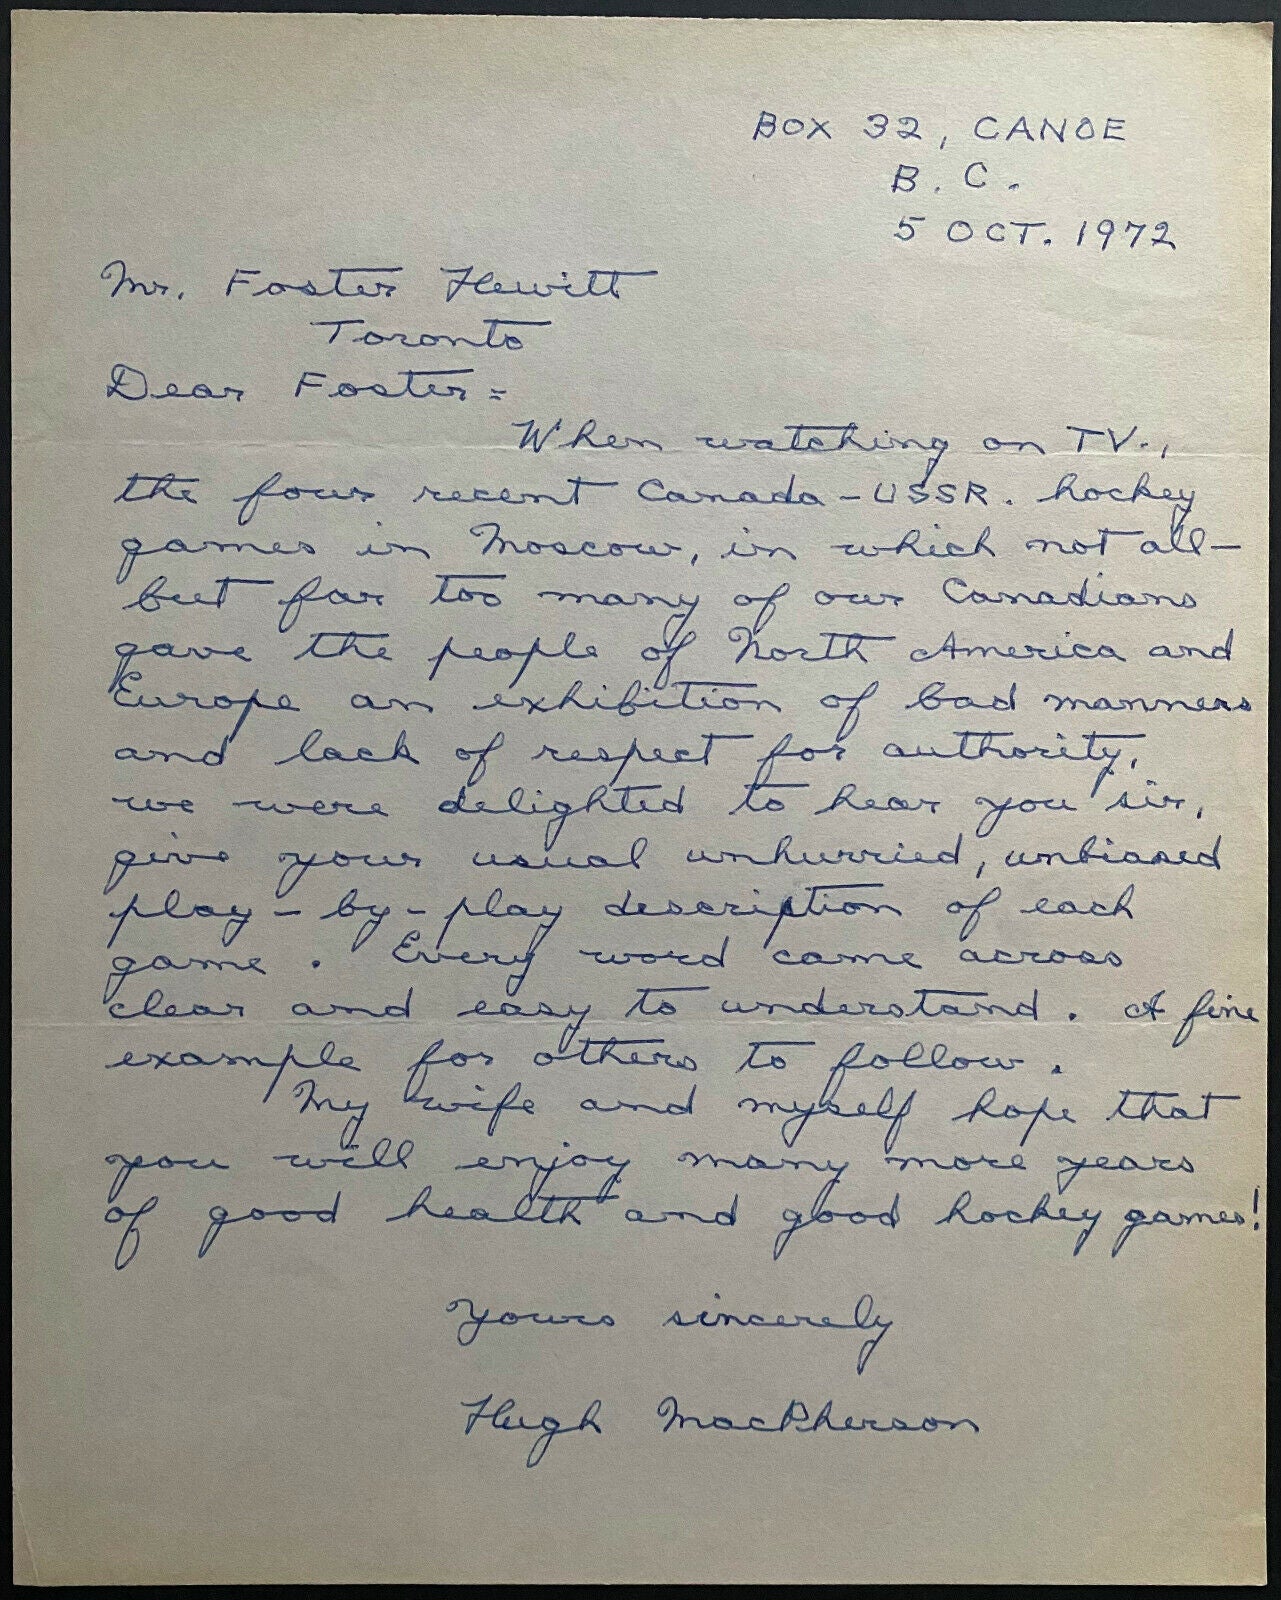 BOX 32, CANOE
B. C.
5 OCT. 1972
Mr. Foster Hewitt
Toronto
Dear Foster =
When watching on TV.,
the four recent Canada - USSR. hockey
games in Moscow, in which not all -
but far too many of our Canadians
gave the people of North America and
Europe an exhibition of bad manners
and lack of respect for authority,
we were delighted to hear you sir,
give your usual unhurried, unbiased
play - by - play description of each
game. Every word came across
clear and easy to understand. A fine
example for others to follow.
My wife and myself hope that
you will enjoy many more years
of good health and good hockey games!
Yours sincerely
Hugh MacPherson